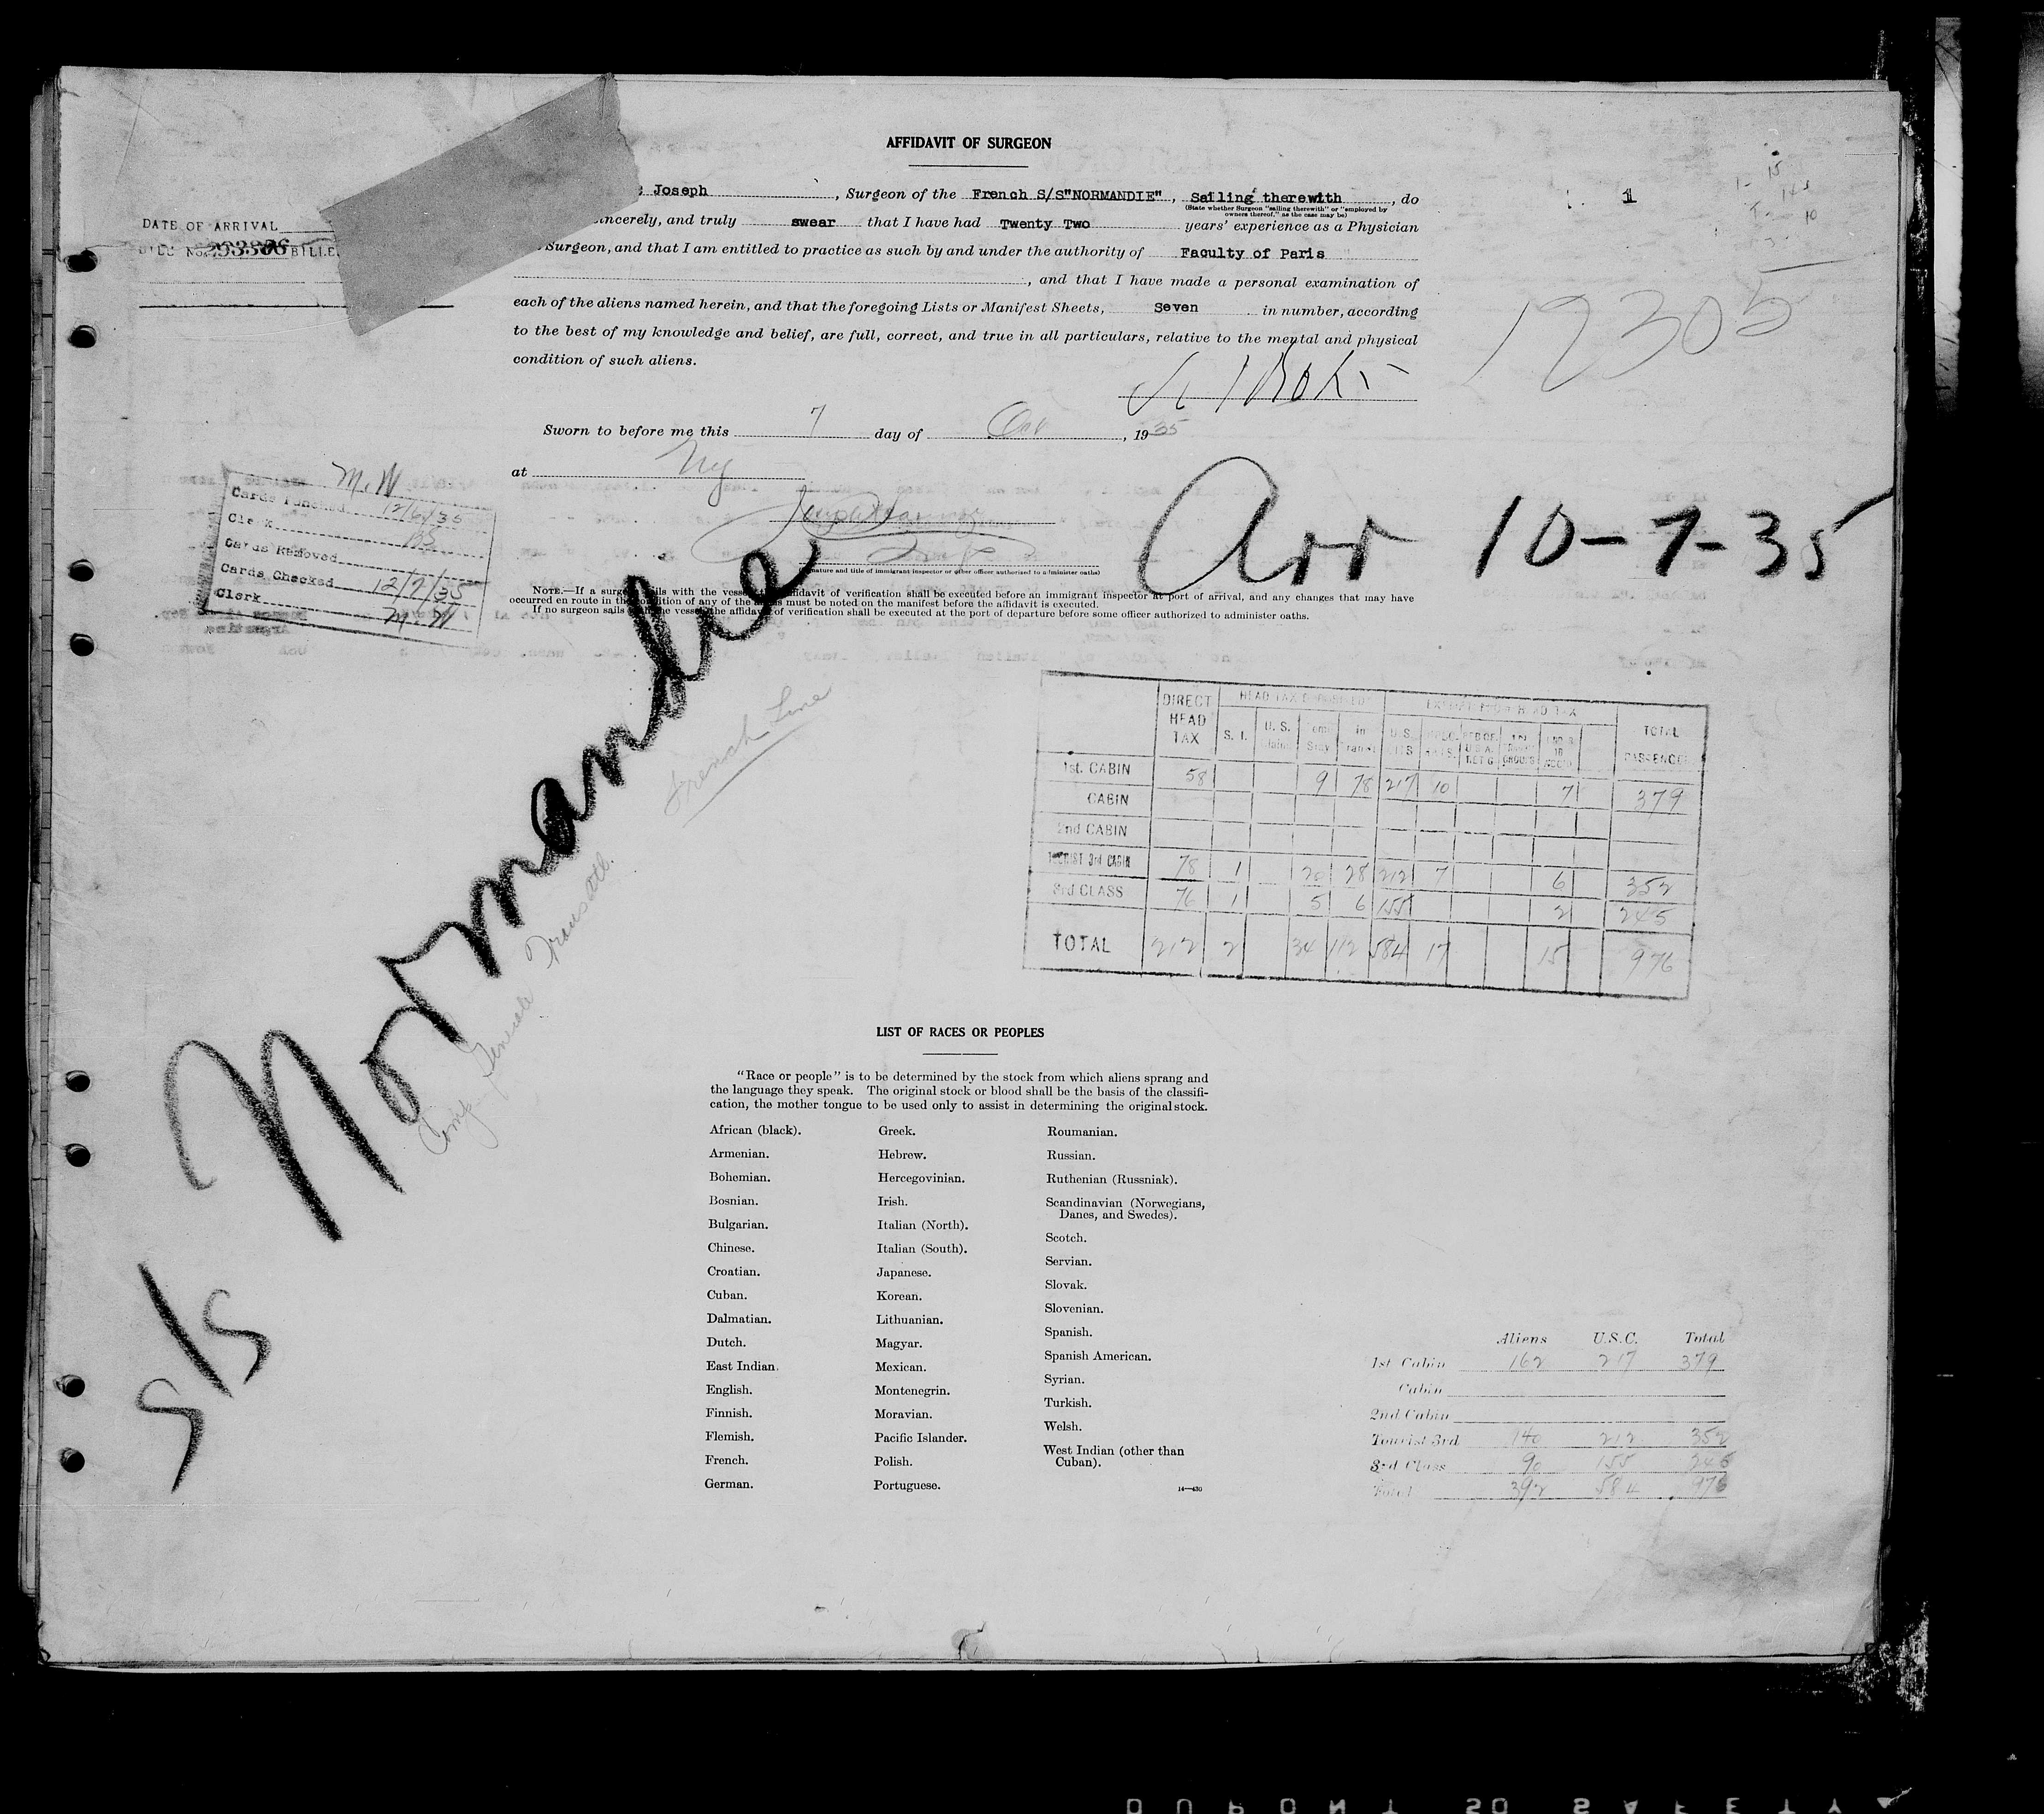 AFFIDAVIT OF SURGEON
Joseph, Surgeon of the French S/S"NORMANDIE", Sailing therewith, do
(State whether Surgeon "sailing therewith" or "employed by
owners thereof," as the case may be)
1
sincerely, and truly swear that I have had Twenty Two years' experience as a Physician
Surgeon, and that I am entitled to practice as such by and under the authority of Faculty of Paris
, and that I have made a personal examination of
each of the aliens named herein, and that the foregoing Lists or Manifest Sheets, Seven in number, according
to the best of my knowledge and belief, are full, correct, and true in all particulars, relative to the mental and physical
condition of such aliens.
DATE OF ARRIVAL
BILL No.
Sworn to before me this 7 day of Oct, 1935
at NY
Arr 10-7-35
M.W
Cards Punched 12/6/35
Clerk
Cards Removed
Cards Checked 12/7/35
Clerk M.W
(Signature and title of immigrant inspector or other officer authorized to administer oaths)
NOTE.—If a surgeon sails with the vessel the affidavit of verification shall be executed before an immigrant inspector at port of arrival, and any changes that may have
occurred en route in the condition of any of the aliens must be noted on the manifest before the affidavit is executed.
If no surgeon sails with the vessel the affidavit of verification shall be executed at the port of departure before some officer authorized to administer oaths.
S/S Normandie
French Line
DIRECT HEAD TAX S. I. U. S. Claim Temp Stay In Transit U.S. CITS TOTAL PASSENGERS
EXEMPT FROM HEAD TAX
1st. CABIN 58 9 78 217 10 7 379
CABIN
2nd CABIN
TOURIST 3rd CABIN 78 1 20 28 212 7 6 352
3rd CLASS 76 1 5 6 155 2 245
TOTAL 212 2 34 112 584 17 15 976
LIST OF RACES OR PEOPLES
"Race or people" is to be determined by the stock from which aliens sprang and
the language they speak. The original stock or blood shall be the basis of the classifi-
cation, the mother tongue to be used only to assist in determining the original stock.
African (black).
Armenian.
Bohemian.
Bosnian.
Bulgarian.
Chinese.
Croatian.
Cuban.
Dalmatian.
Dutch.
East Indian.
English.
Finnish.
Flemish.
French.
German.
Greek.
Hebrew.
Hercegovinian.
Irish.
Italian (North).
Italian (South).
Japanese.
Korean.
Lithuanian.
Magyar.
Mexican.
Montenegrin.
Moravian.
Pacific Islander.
Polish.
Portuguese.
Roumanian.
Russian.
Ruthenian (Russniak).
Scandinavian (Norwegians,
Danes, and Swedes).
Scotch.
Servian.
Slovak.
Slovenian.
Spanish.
Spanish American.
Syrian.
Turkish.
Welsh.
West Indian (other than
Cuban).
14—430
Aliens U.S.C. Total
1st Cabin 162 217 379
Cabin
2nd Cabin
Tourist 3rd 140 212 352
3rd Class 90 155 245
Total 392 584 976